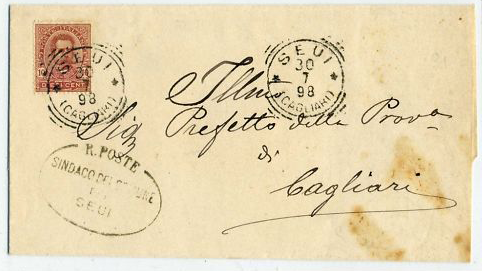 SEUI
30
7
98
(CAGLIARI)
SEUI
30
98
(CAGLIARI)
Illmo
Sig Prefetto della Prova
di
Cagliari
R. POSTE
SINDACO DEL COMUNE
DI
SEUI